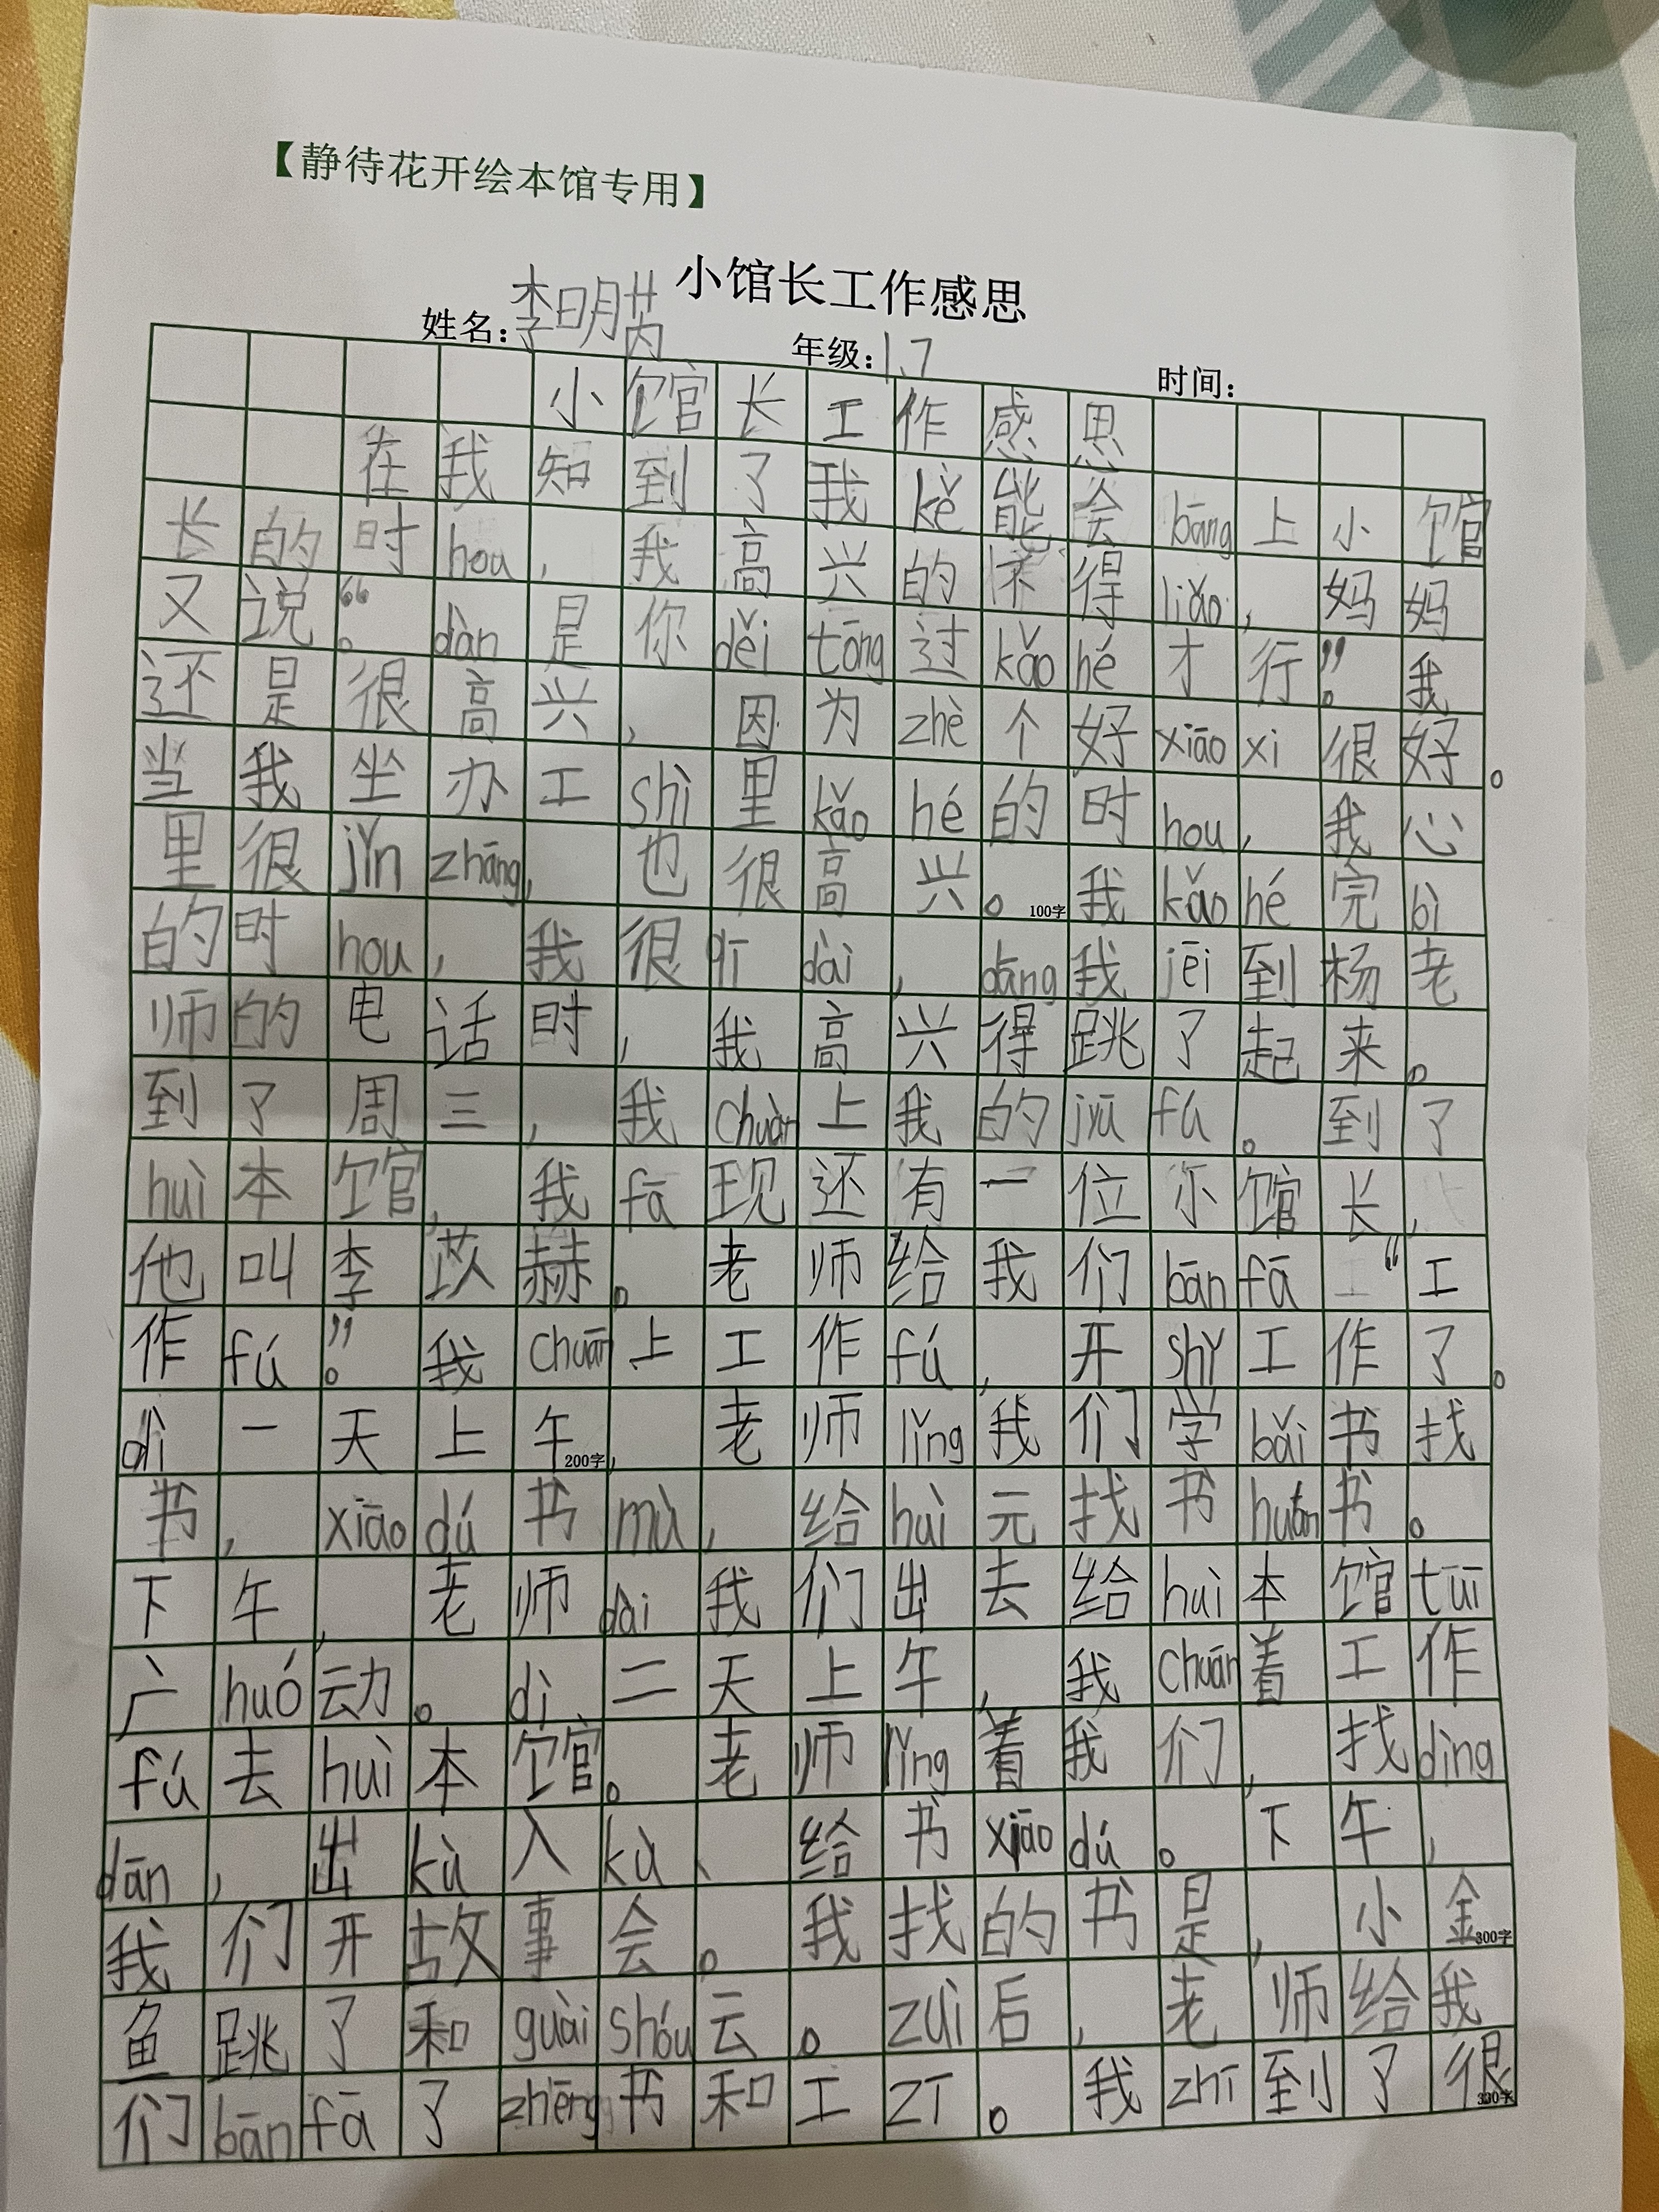 【静待花开绘本馆专用】
小馆长工作感思
姓名：李明芮 年级：1.7 时间：
小馆长工作感思
在我知到了我kě能会bāng上小馆
长的时hou，我高兴的不得liǎo，妈妈
又说。“dàn是你děi tōng过kǎo hé才行”。我
还是很高兴，因为zhè个好xiāo xi很好。
当我坐办工shì里kǎo hé的时hou，我心
里很jǐn zhāng，也很高兴。100字我kǎo hé完bì
的时hou，我很qī dài，dāng我jēi到杨老
师的电话时，我高兴得跳了起来。
到了周三，我chuàn上我的jūn fú。到了
huì本馆，我fā现还有一位小馆长，
他叫李苡赫。老师给我们bān fā“工
作fú”。我chuān上工作fú，开shǐ工作了。
dì一天上午200字，老师lǐng我们学bǎi书找
书，xiāo dú书mù，给huì元找书huán书。
下午，老师dài我们出去给huì本馆tuī
广huó动。dì二天上午，我chuān着工作
fú去huì本馆。老师lǐng着我们，找dìng
dān，出kù入kù、给书xiāo dú。下午，
我们开故事会。我找的书是，小金300字
鱼跳了和guài shóu云。zuì后，老师给我
们bān fā了zhēng书和工zī。我zhī到了很330字